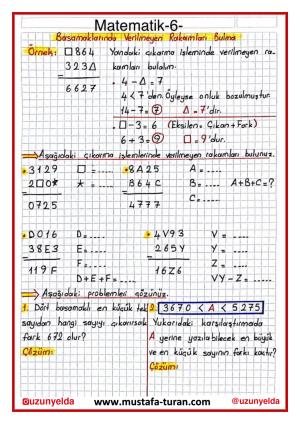 Matematik-6-
Basamaklarında Verilmeyen Rakamları Bulma
Örnek: □864 Yandaki çıkarma işleminde verilmeyen ra-
323△ kamları bulalım.
6627 • 4 - △ = 7
4 < 7'den. Öyleyse onluk bozulmuştur.
14-7=7 △ = 7'dir.
• □-3=6 (Eksilen = Çıkan + Fark)
6+3=9 □ = 9'dur.
Aşağıdaki çıkarma işlemlerinde verilmeyen rakamları bulunuz.
3129 □ = .... 8A25 A = ....
2□0* * = .... B64C B = .... A+B+C=?
0725 4777 C = ....
D016 D = .... 4V93 V = ....
38E3 E = .... 265Y Y = ....
119F F = .... 16Z6 Z = ....
D+E+F = .... VY-Z = ....
Aşağıdaki problemleri çözünüz.
1. Dört basamaklı en küçük tek sayıdan hangi sayıyı çıkarırsak fark 672 olur?
Çözüm:
2. 3670 < A < 5275
Yukarıdaki karşılaştırmada
A yerine yazılabilecek en büyük
ve en küçük sayının farkı kaçtır?
Çözüm:
@uzunyelda www.mustafa-turan.com @uzunyelda